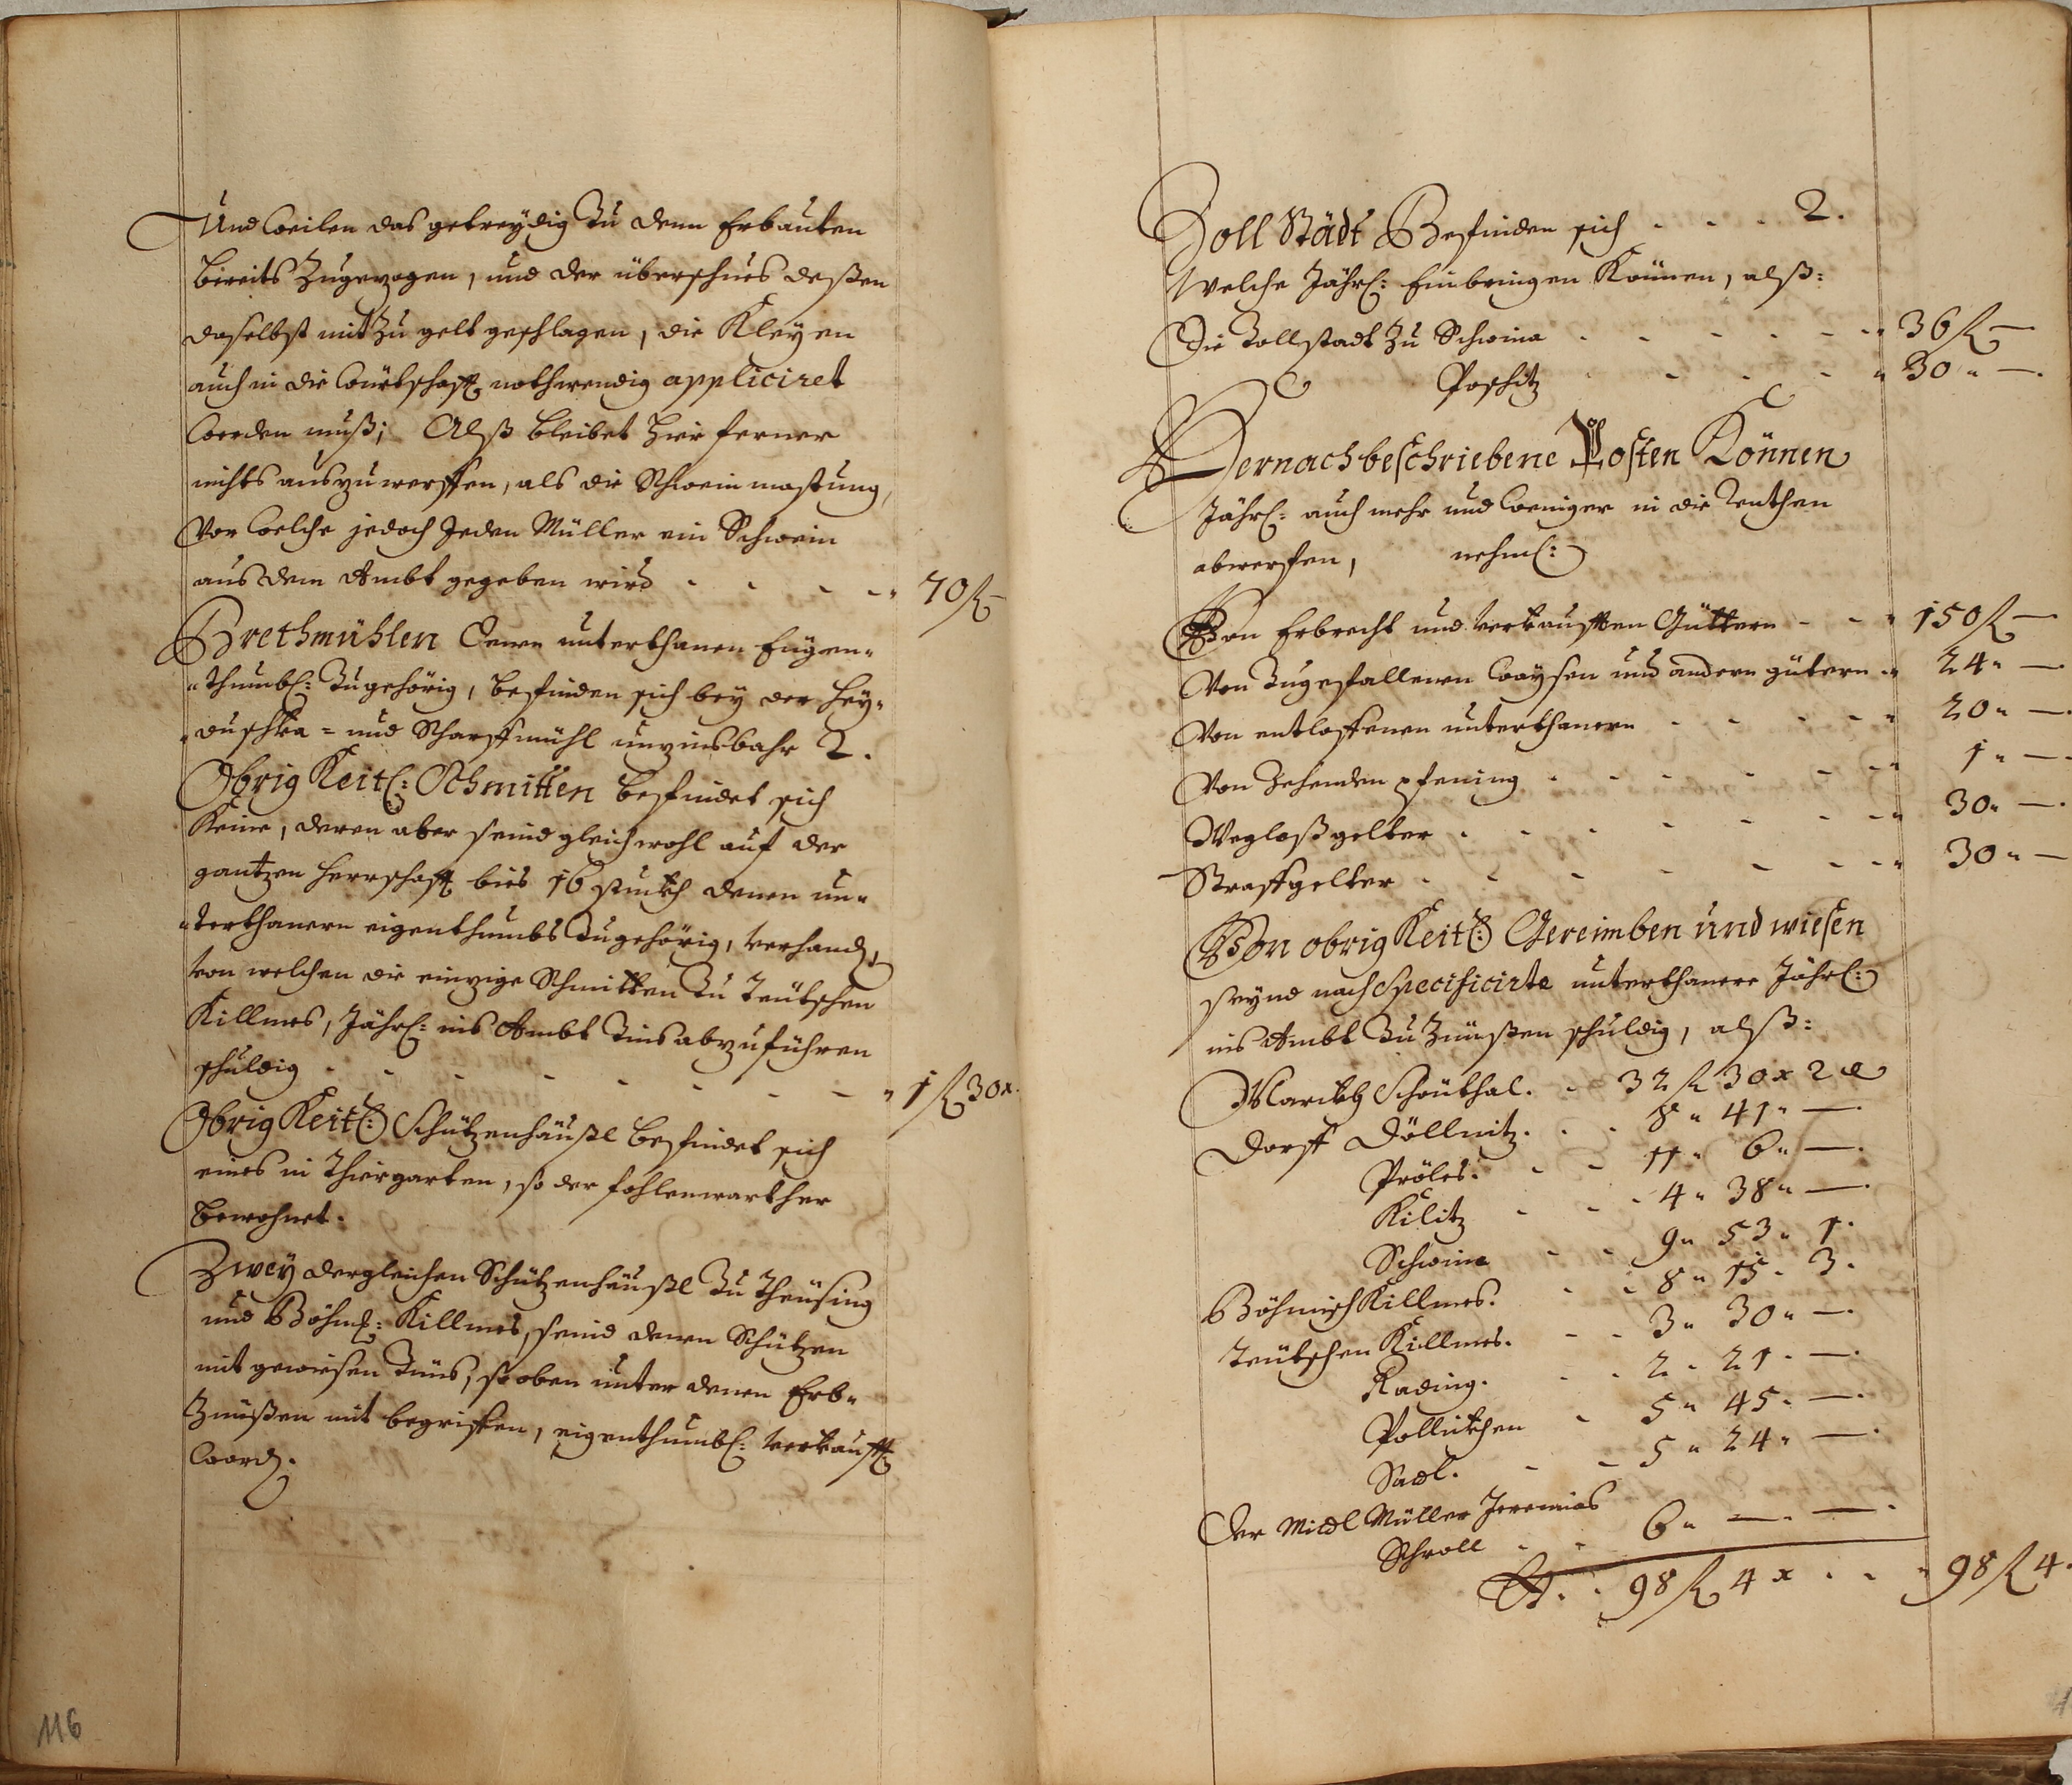 Und Weilen das getreydig Zu denn Erbauten
bereits Zugezogen, und der überschues deßen
daselbst mit Zu gelt geschlagen, die Kleyen
auch in die Würtschafft nothwendig appliciret
Werden muß; Alß bleibet hier ferner
nichts auszuwerffen, als die Schwein mastung,
Vor Welche jedoch Jeden Müller ein Schwein
aus dem Ambt gegeben wird - - - - " 70 f —
Brethmühlen Denen unterthanen Eugen-
"thumbl: Zugehörig, befinden sich bey der Hey-
"duschka = und Scharffmühl unzinsbahr 2.
Obrig Keitl: Schmitten befindet sich
Keine, deren aber seind gleichwohl auf der
gantzen Herrschafft bies 16 stuckh denen un-
"terthanern eigenthumbs Zugehörig, verhand,
von welchen die einzige Schmitten Zu Teutschen
Killmes, Jährl: ins Ambt Zins abzuführen
schuldig - - - - - - - " 1 f 30 x.
Obrig Keitl: Schützenhäußl befindet sich
eines in Thiergarten, so der fohlenwarther
bewohnet.
Zwey dergleichen Schützenhäußl Zu Theusing
und Böhml: Killmes, seind denen Schützen
mit gewiesen Zins, so oben unter denen Erb-
Zinnßen mit begriffen, eigenthumbl: verkaufft
Word.
116
Zoll Städt Befinden sich - - - 2.
Welche Jährl: Einbringen Können, alß:
Die Zollstadt Zu Schwina - - - - - " 36 f —
Poschitz - - - - " 30 " —.
Hernachbeschriebene Posten Können
Jährl: auch mehr und Weniger in die Renthen
abwerffen, nehml:
Von Erbrecht und verkaufften Güttern - - " 150 f —
Von Zugefallenen Waysen und andern gütern " 24 " —.
Von entloffenen unterthanern - - - - " 20 " —.
Von Zehenden pfening - - - - - " 1 " —.
Weglaßgelter - - - - - - " 30 " —.
Straffgelter - - - - - - " 30 " —
Von obrig Keitl: Gereimben und wiesen
seynd nach Specificirte unterthanere Jährl:
ins Ambt Zu Zinnßen schuldig, alß:
Marckh Schönthal. - 32 f 30 x 2 d
Dorff Döllnitz. - - 8 " 41 " —.
Pröles. - - 11 " 6 " —.
Kilitz - - - 4 " 38 " —.
Schwina - - 9 " 53 " 1.
Böhmisch Killmes. - - 8 " 15 " 3.
Teutschen Killmes. - - 3 " 30 " —.
Rading. - - 2 " 21 " —.
Pollickhen - 5 " 45 " —.
Sadl. - - 5 " 24 " —.
Der Midl Müller Jeremias
Schroll - - 6 " — " —.
98 f 4 x - - " 98 f 4.